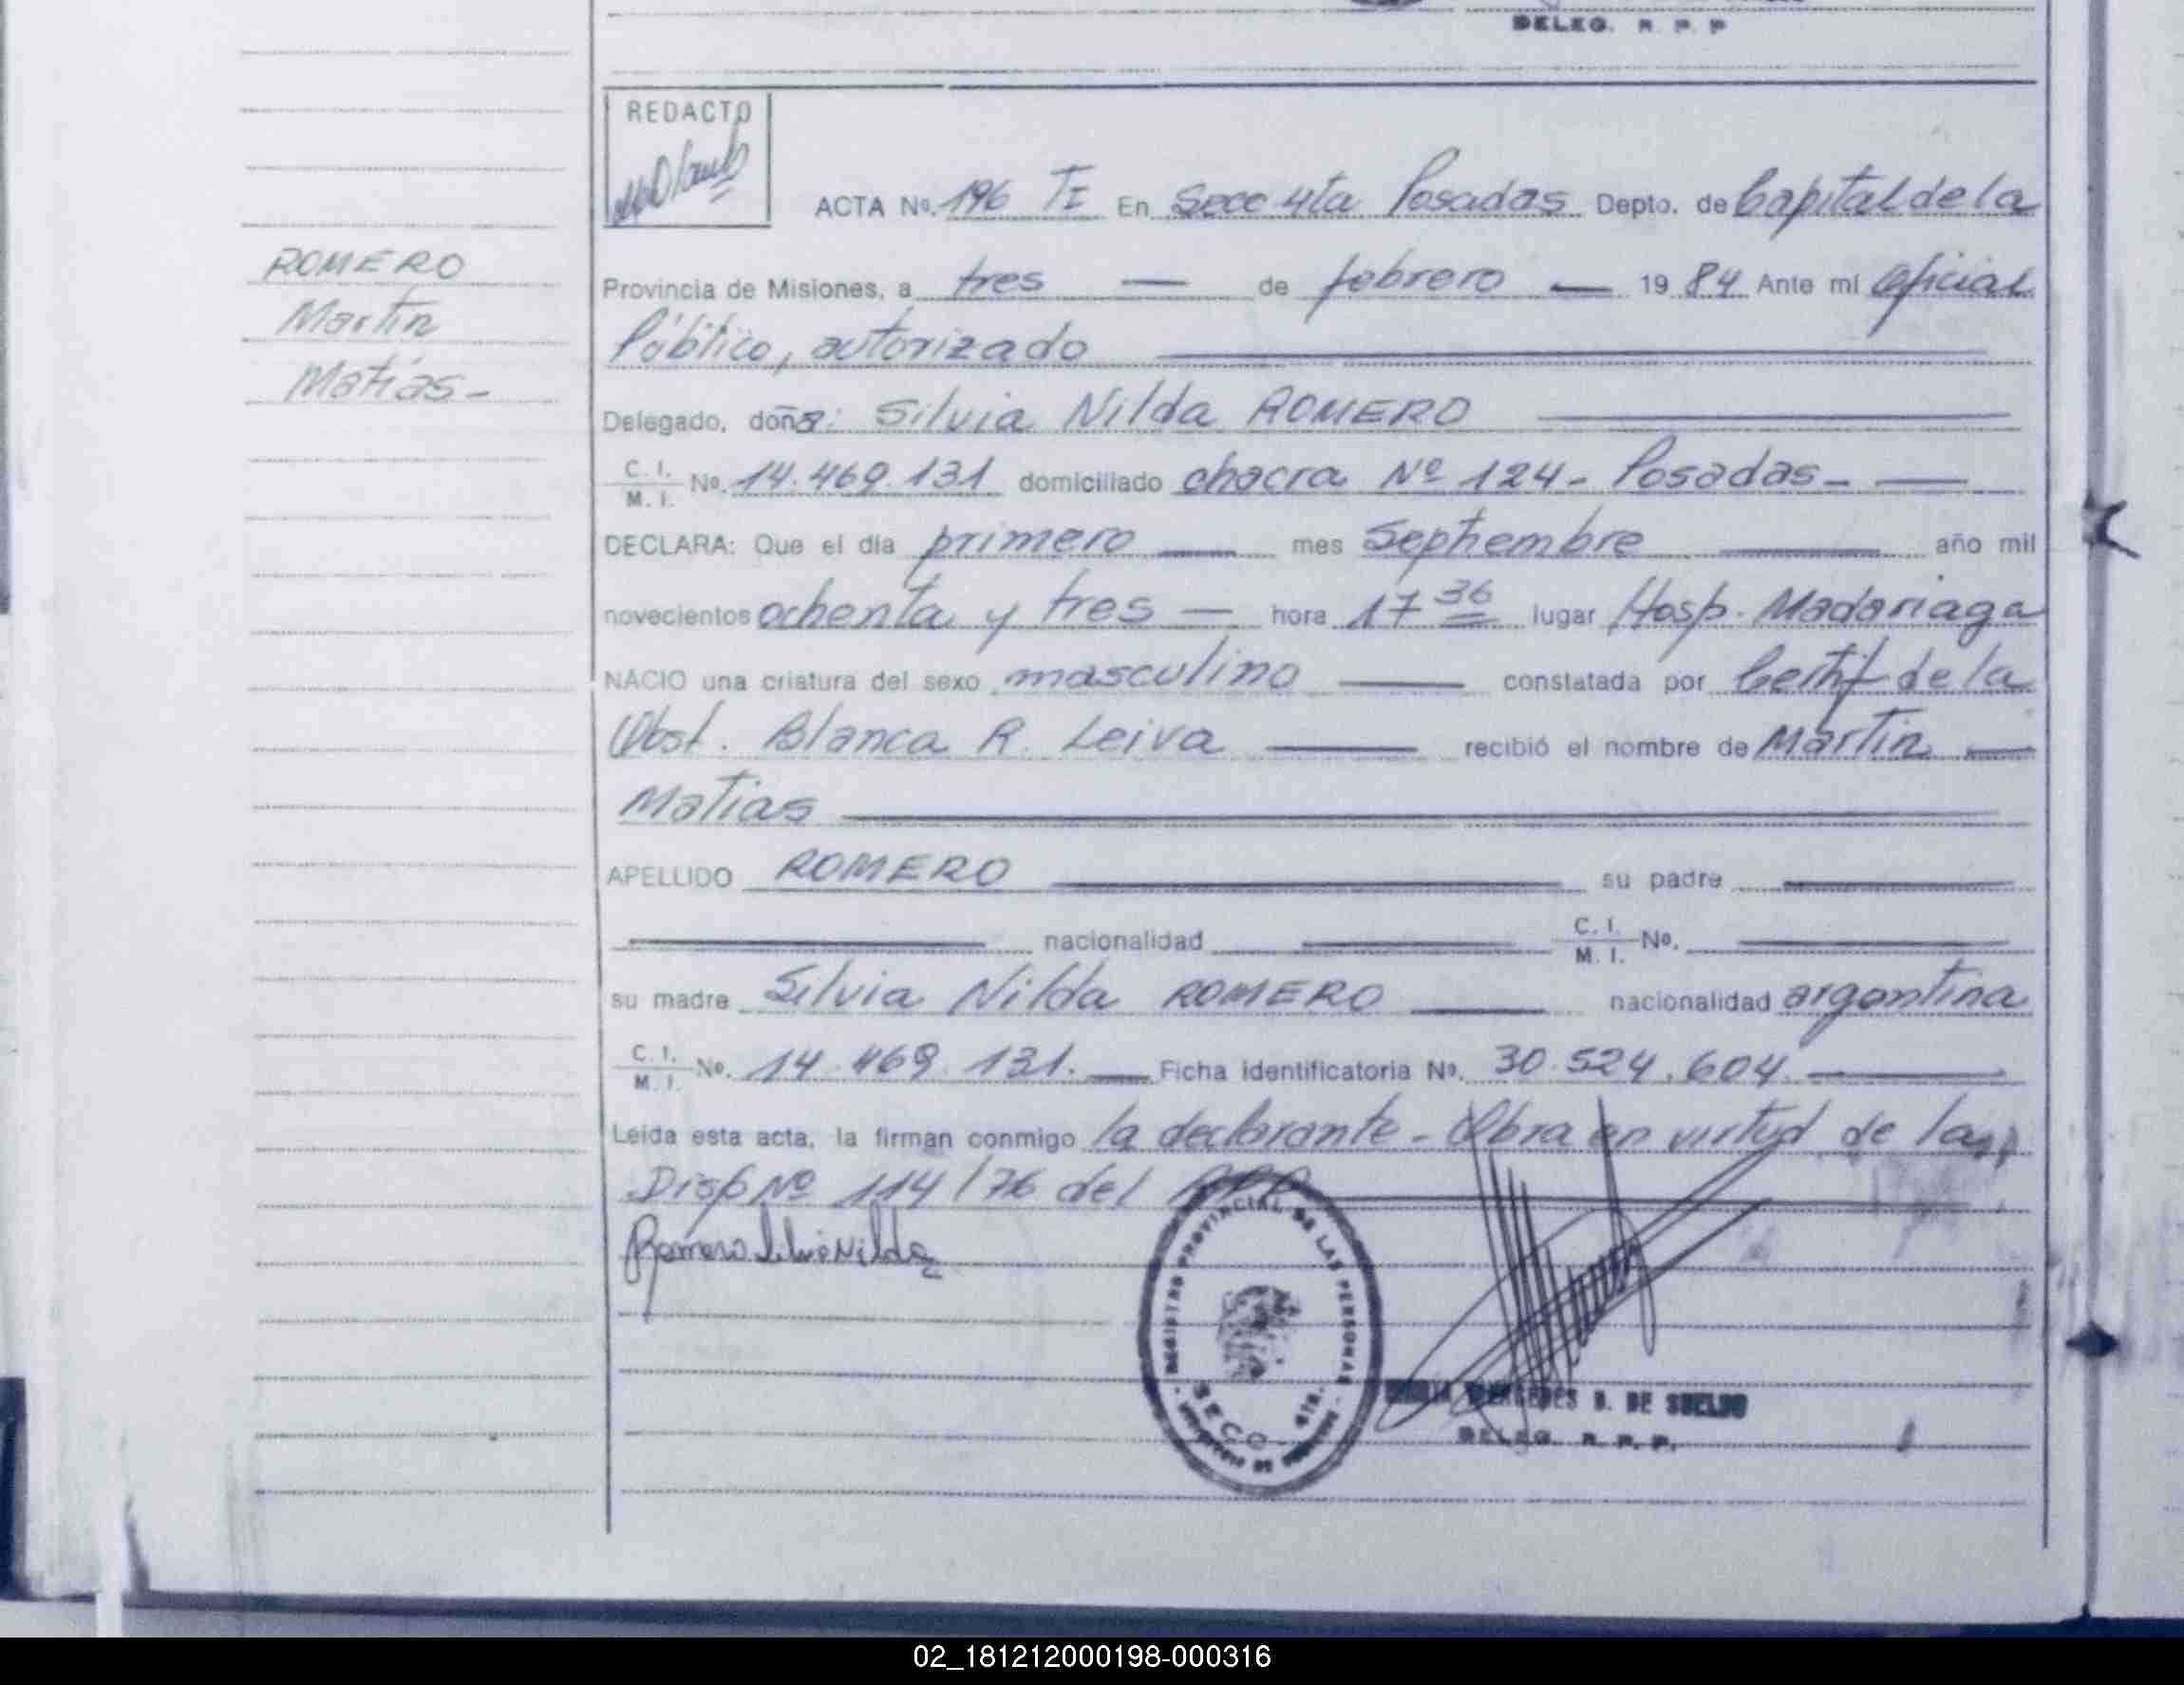 DELEG. R. P. P
REDACTO
ACTA Nº. 196 TI En Secc 4ta Posadas Depto. de Capital de la
ROMERO
Martin
Matías-
Provincia de Misiones, a tres — de febrero — 19 84 Ante mi Oficial
Público, autorizado
Delegado, doña: Silvia Nilda ROMERO
C. I.
M. I. Nº. 14.469.131 domiciliado chacra Nº 124- Posadas-
DECLARA: Que el día primero — mes Septiembre — año mil
novecientos ochenta y tres — hora 17 36 lugar Hosp. Madariaga
NACIO una criatura del sexo masculino — constatada por Certif de la
Obst. Blanca R. Leiva — recibió el nombre de Martin —
Matias
APELLIDO ROMERO su padre
nacionalidad C. I.
M. I. Nº.
su madre Silvia Nilda ROMERO — nacionalidad argentina
C. I.
M. I. Nº. 14.469.131. — Ficha identificatoria Nº. 30.524.604.
Leída esta acta, la firman conmigo la declarante - Obra en virtud de la
Disp Nº 114/76 del RPP
Romero Silvia Nilda
REGISTRO PROVINCIAL DE LAS PERSONAS
SECC. 4ta.
MERCEDES B. DE SUELDO
DELEG. R. P. P.
02_181212000198-000316